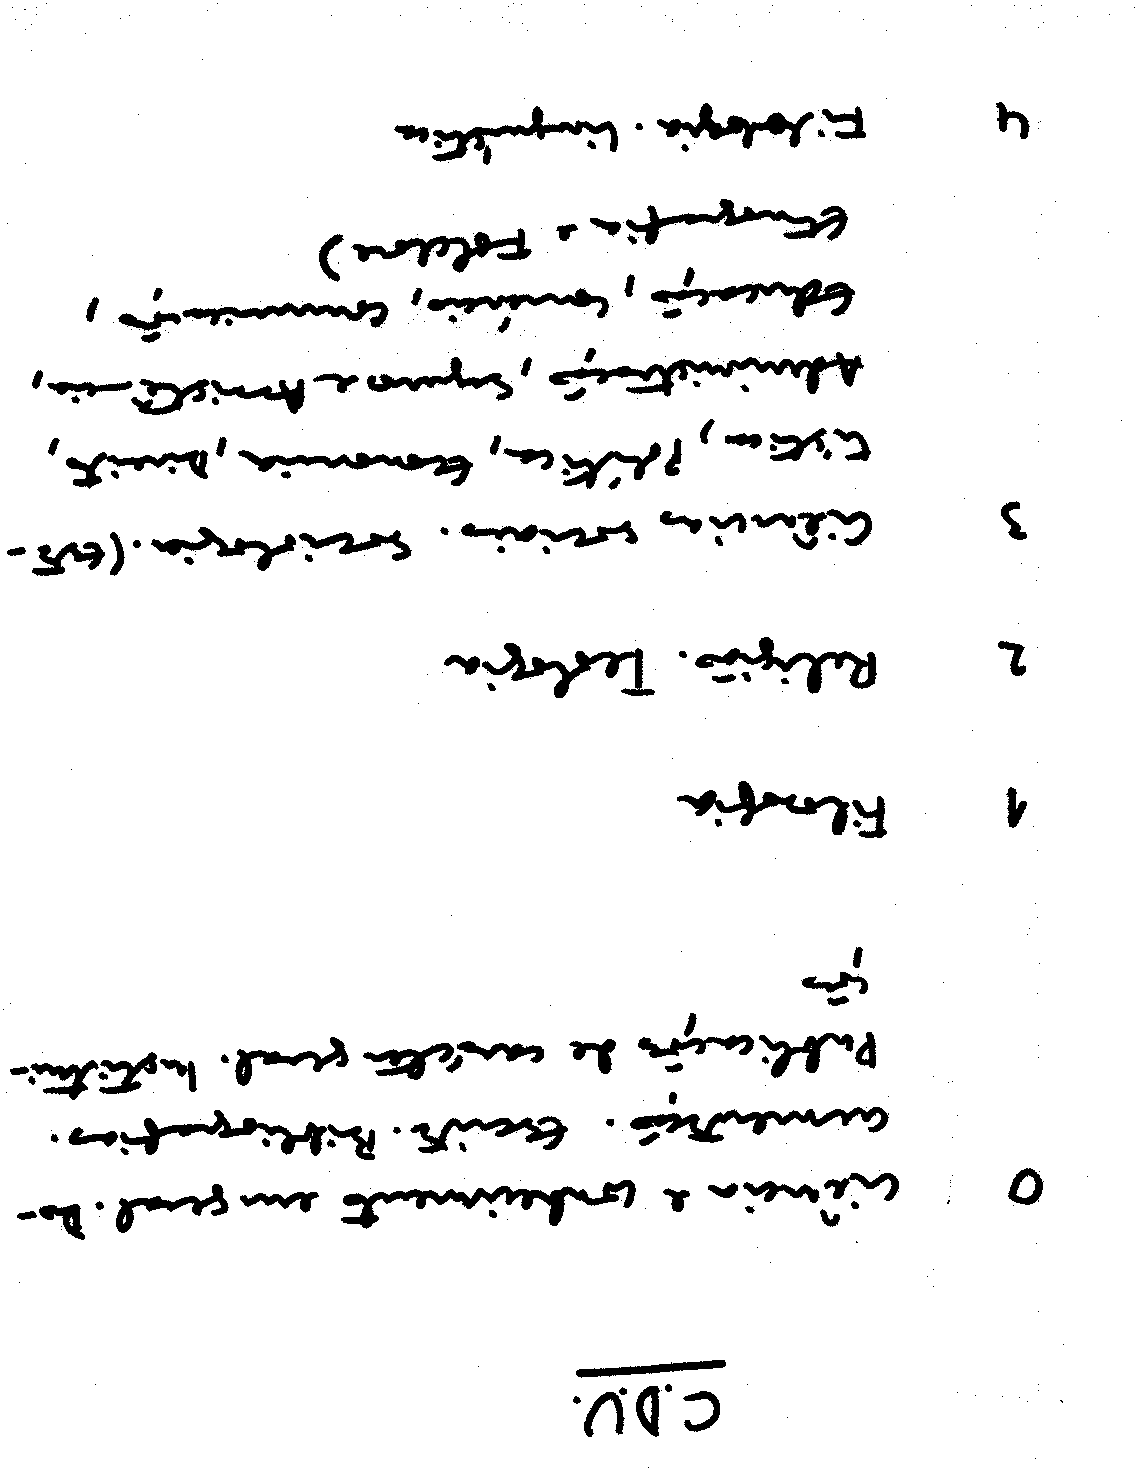 C.D.U.
0 Ciência e conhecimento em geral. Do-
cumentação. Escrita. Bibliografias.
Publicações de carácter geral. Institui-
ções
1 Filosofia
2 Religião. Teologia
3 Ciências sociais. Sociologia. (Esta-
tística, Política, Economia, Direito,
Administração, Seguros e Assistência,
Educação, Comércio, Comunicações,
Etnografia e Folclore)
4 Filologia. Linguística